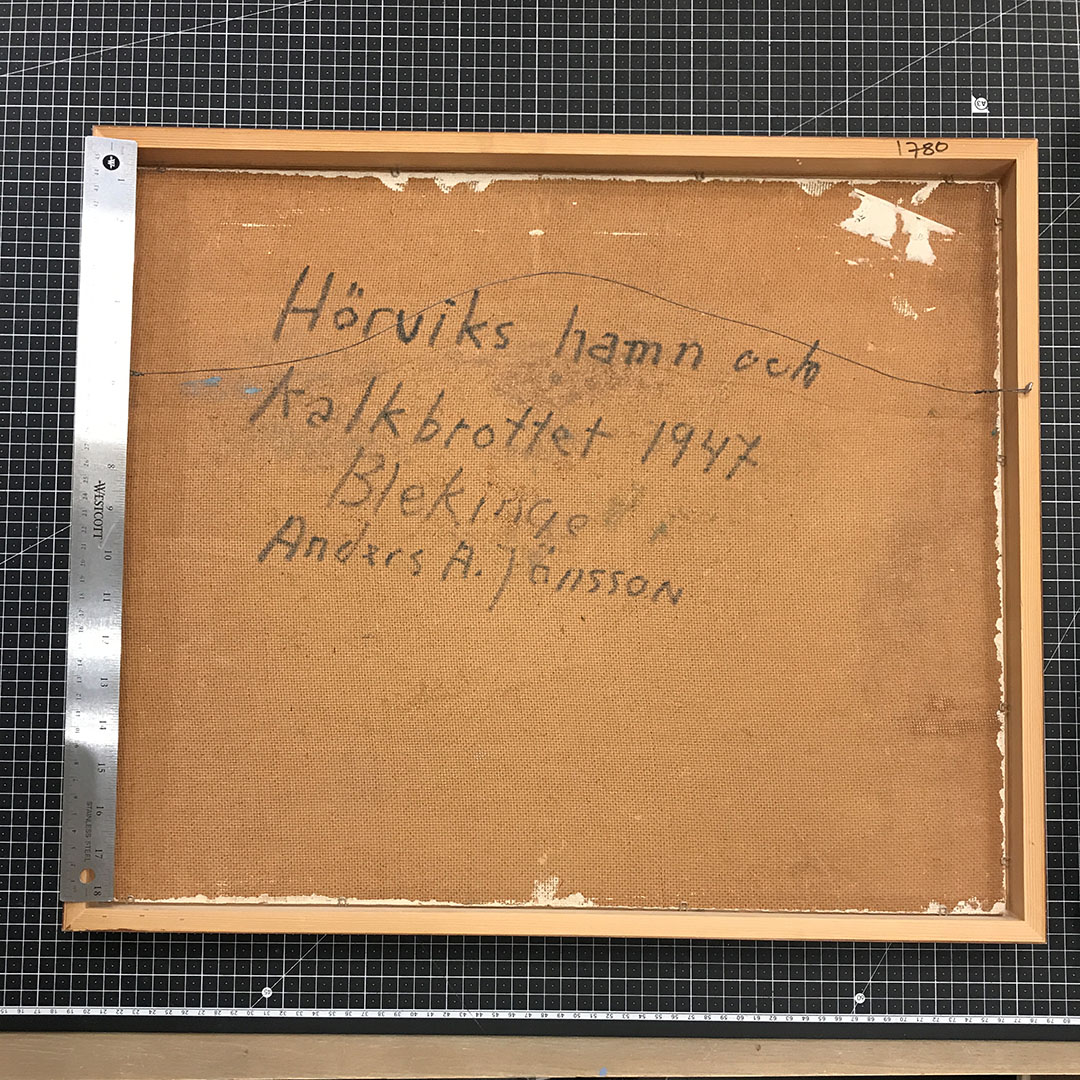 1780
Hörviks hamn och
kalkbrottet 1947
Blekinge
Anders A. Jönsson
WESTCOTT
STAINLESS STEEL
1
8
9
10
11
12
13
14
15
16
17
18